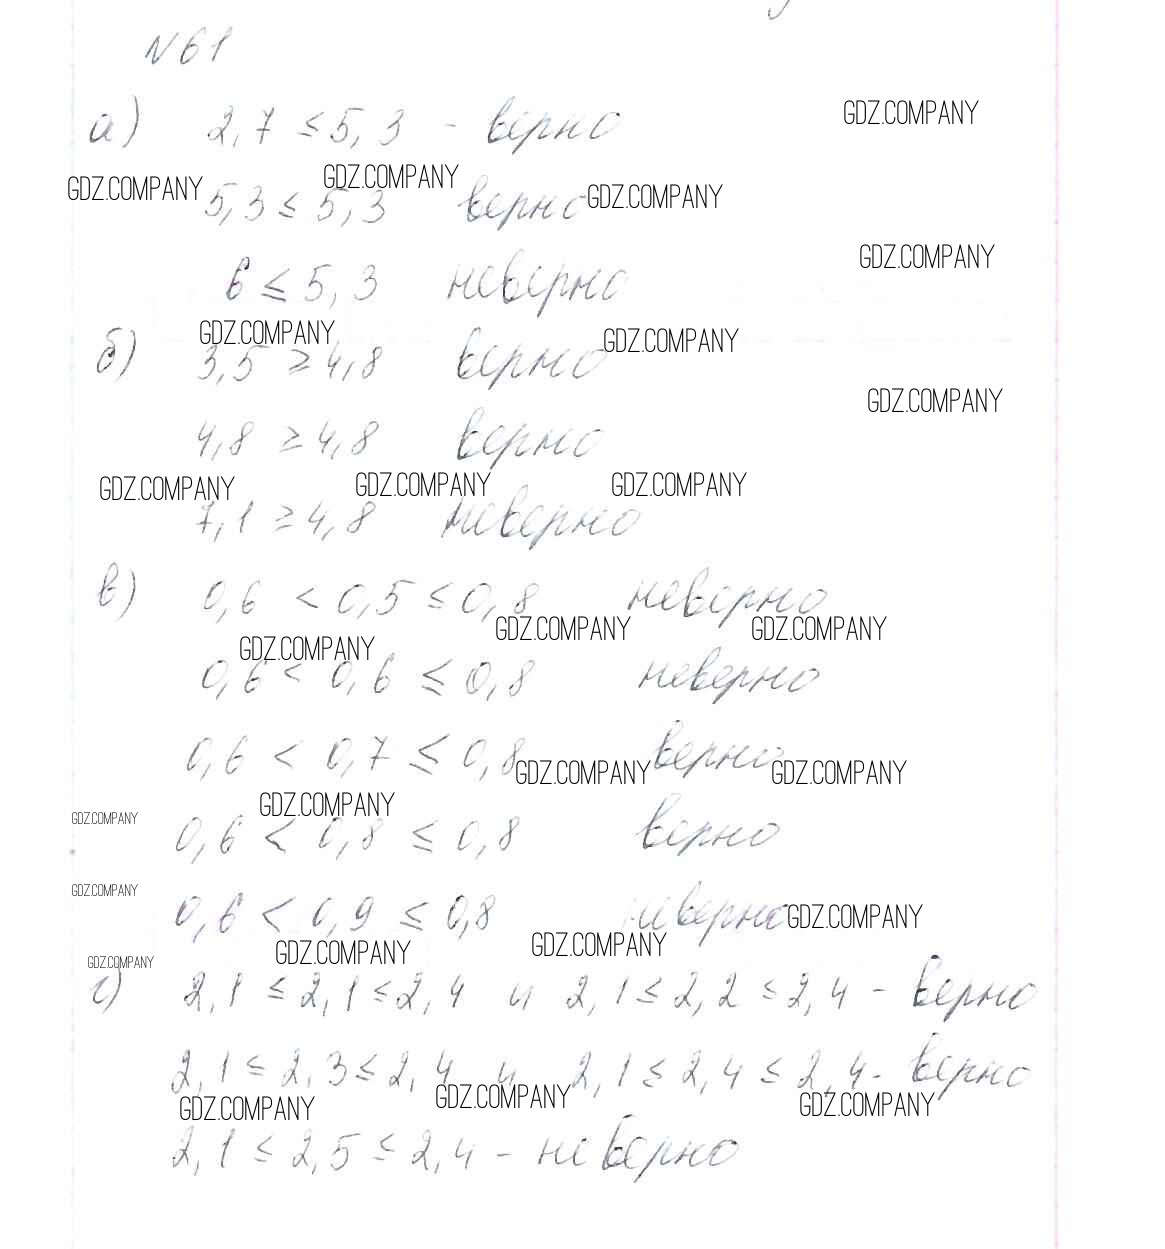 №61
а) 2,7 ≤ 5,3 - верно
GDZ.COMPANY
GDZ.COMPANY GDZ.COMPANY GDZ.COMPANY
5,3 ≤ 5,3 верно
GDZ.COMPANY
6 ≤ 5,3 неверно
GDZ.COMPANY GDZ.COMPANY
б) 3,5 ≥ 4,8 верно
GDZ.COMPANY
4,8 ≥ 4,8 верно
GDZ.COMPANY GDZ.COMPANY GDZ.COMPANY
7,1 ≥ 4,8 неверно
в) 0,6 < 0,5 ≤ 0,8 неверно
GDZ.COMPANY GDZ.COMPANY GDZ.COMPANY
0,6 < 0,6 ≤ 0,8 неверно
0,6 < 0,7 ≤ 0,8 верно
GDZ.COMPANY GDZ.COMPANY
GDZ.COMPANY GDZ.COMPANY
0,6 < 0,8 ≤ 0,8 верно
GDZ.COMPANY
0,6 < 0,9 ≤ 0,8 неверно
GDZ.COMPANY
GDZ.COMPANY GDZ.COMPANY GDZ.COMPANY
г) 2,1 ≤ 2,1 ≤ 2,4 и 2,1 ≤ 2,2 ≤ 2,4 - верно
2,1 ≤ 2,3 ≤ 2,4 и 2,1 ≤ 2,4 ≤ 2,4 - верно
GDZ.COMPANY GDZ.COMPANY GDZ.COMPANY
2,1 ≤ 2,5 ≤ 2,4 - неверно